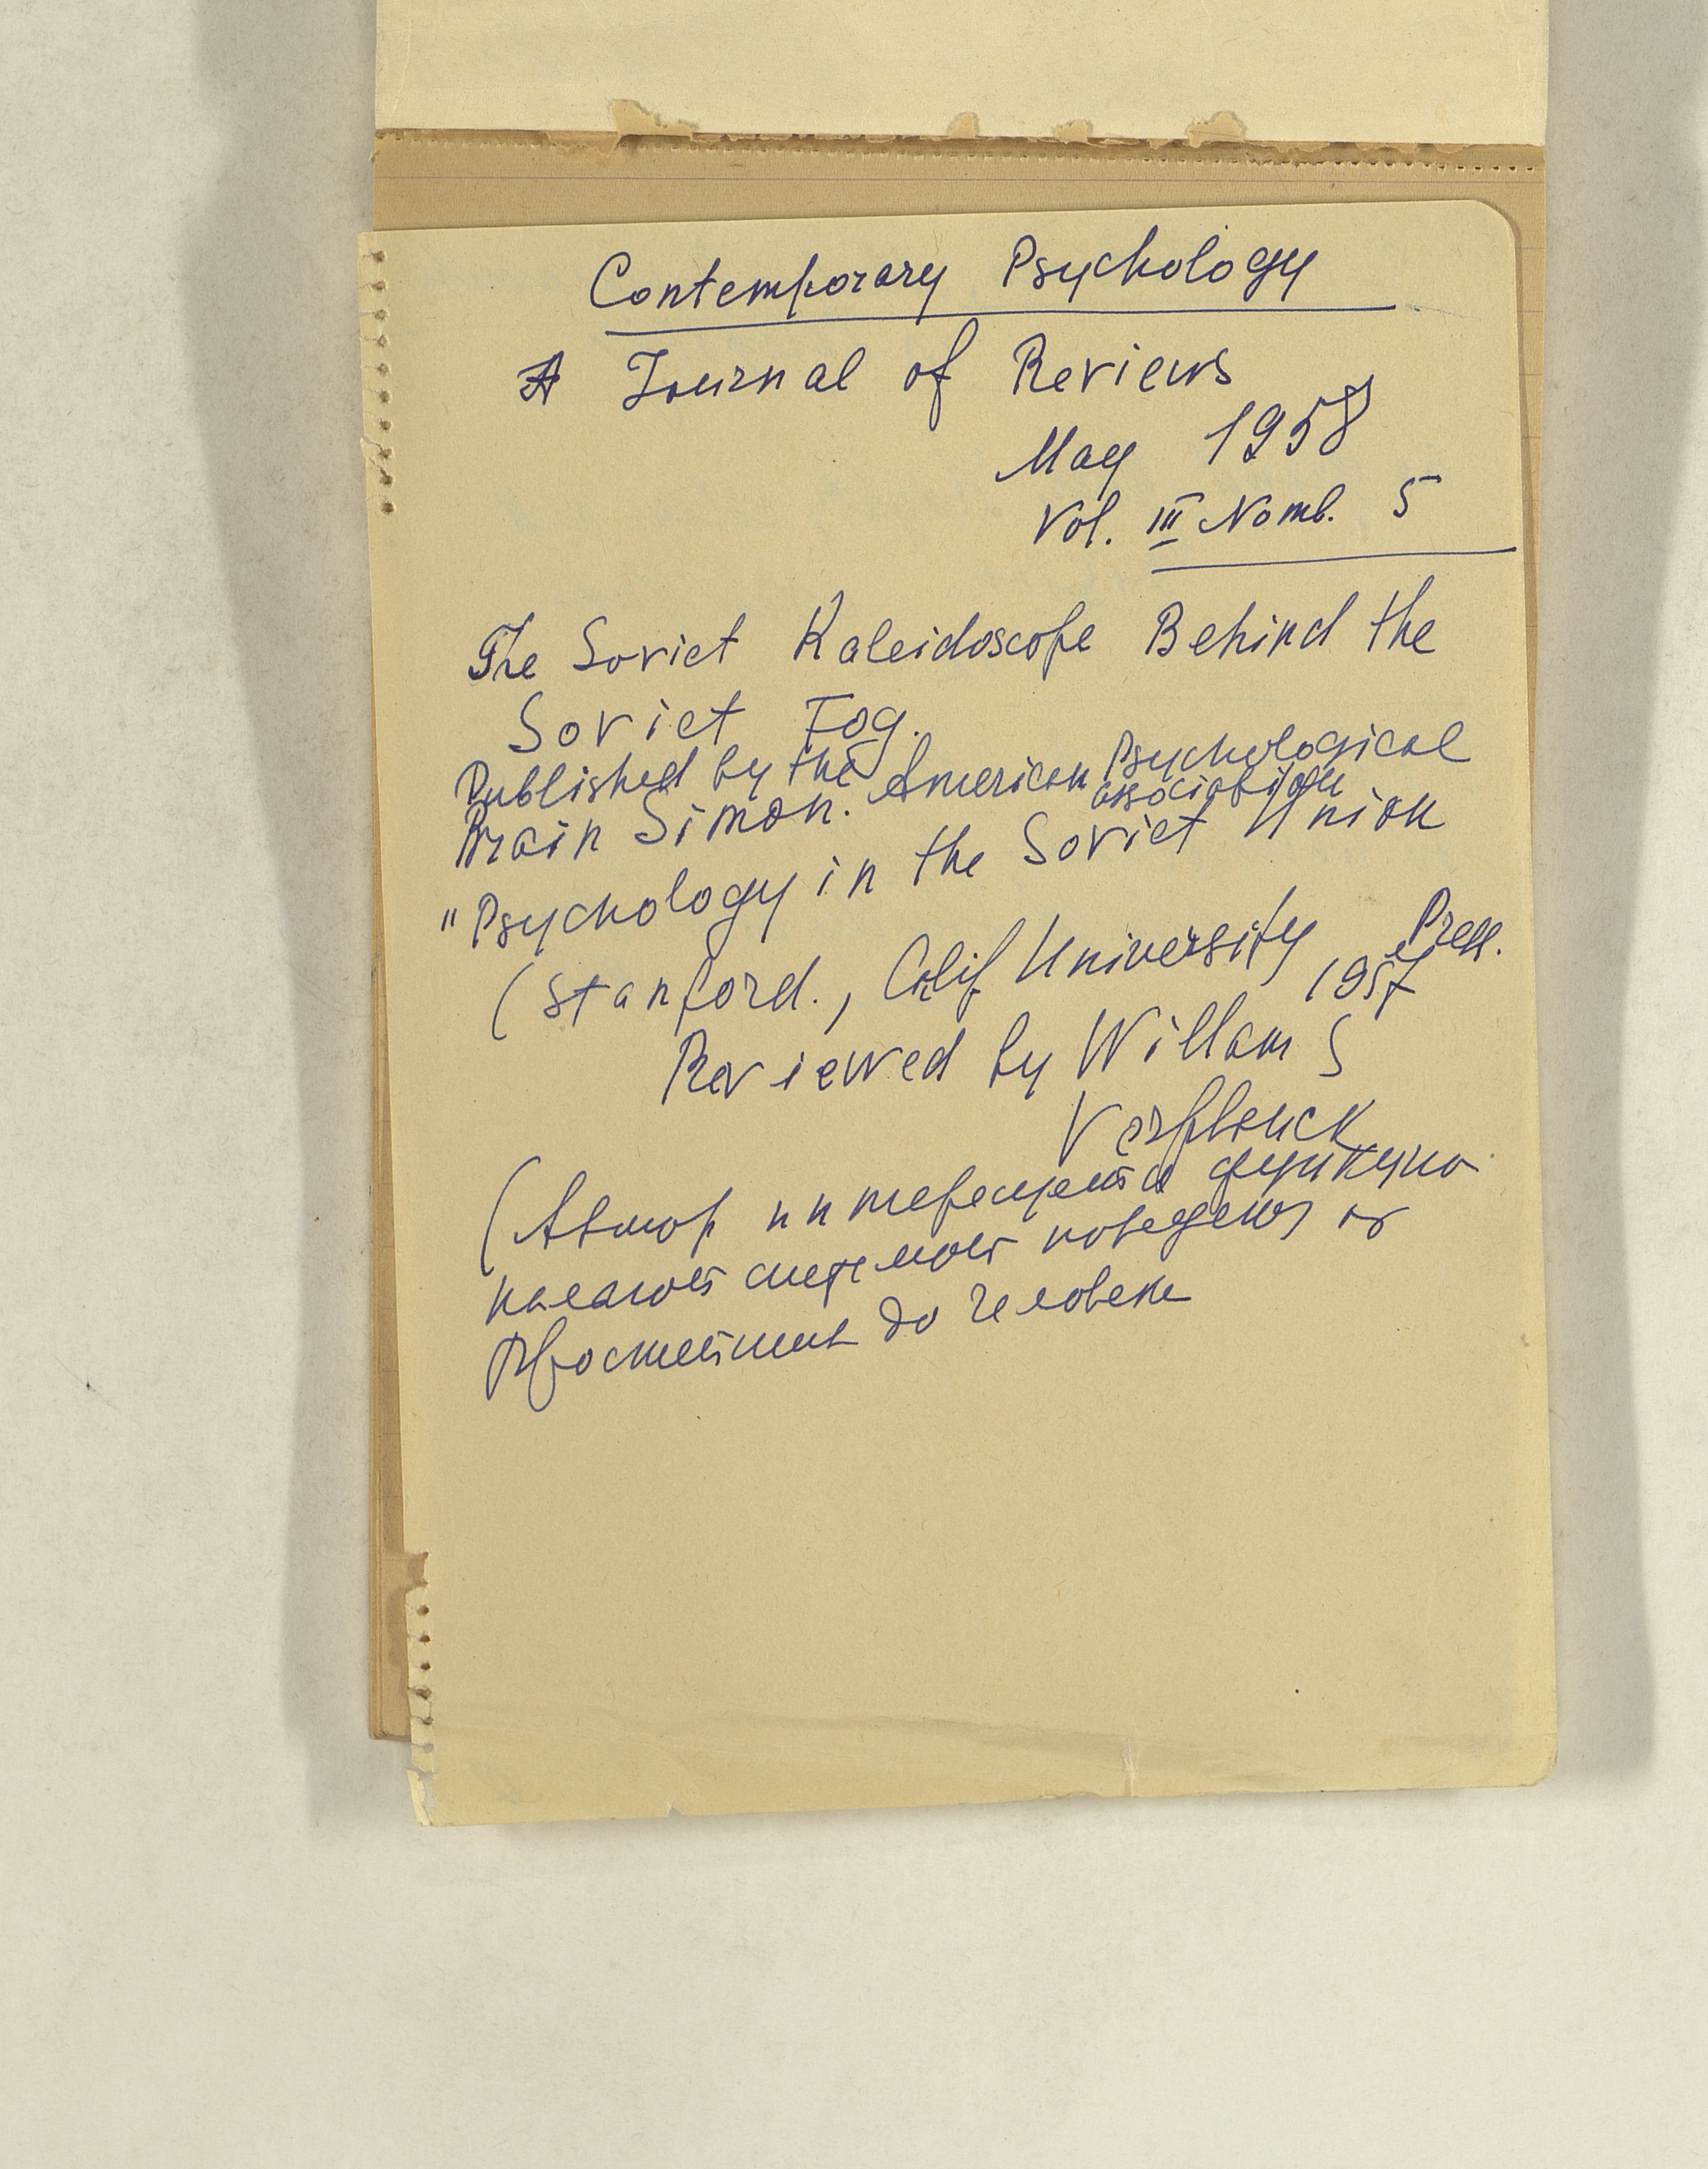 Contemporary Psychology
A Journal of Reviews
May 1958
Vol. III Nomb. 5
The Soviet Kaleidoscope Behind the
Soviet Fog.
Published by the American Psychological
association
Brain Simon.
"Psychology in the Soviet Union
(Stanford., Calif University Press.
1957
Reviewed by Willam S
Verplanck
(Автор интересуется функцио
нальной системой поведения от
простейших до человека